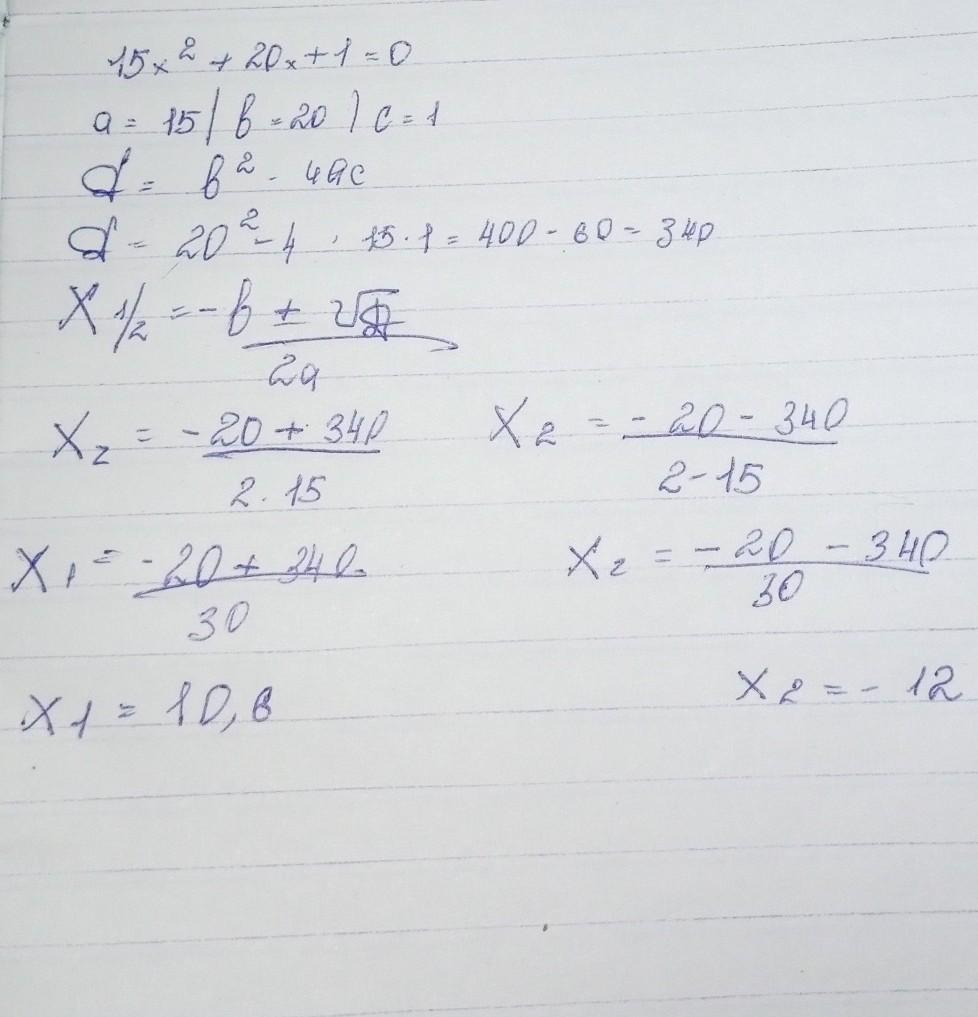 15x² + 20x + 1 = 0
a = 15 | b = 20 ) c = 1
d = b² - 4ac
d = 20² - 4 · 15 · 1 = 400 - 60 = 340
X 1/2 = -b ± √D / 2a
X₂ = -20 + 340 / 2 · 15 X₂ = -20 - 340 / 2 - 15
X₁ = -20 + 340 / 30 X₂ = -20 - 340 / 30
X1 = 10,6 X2 = - 12